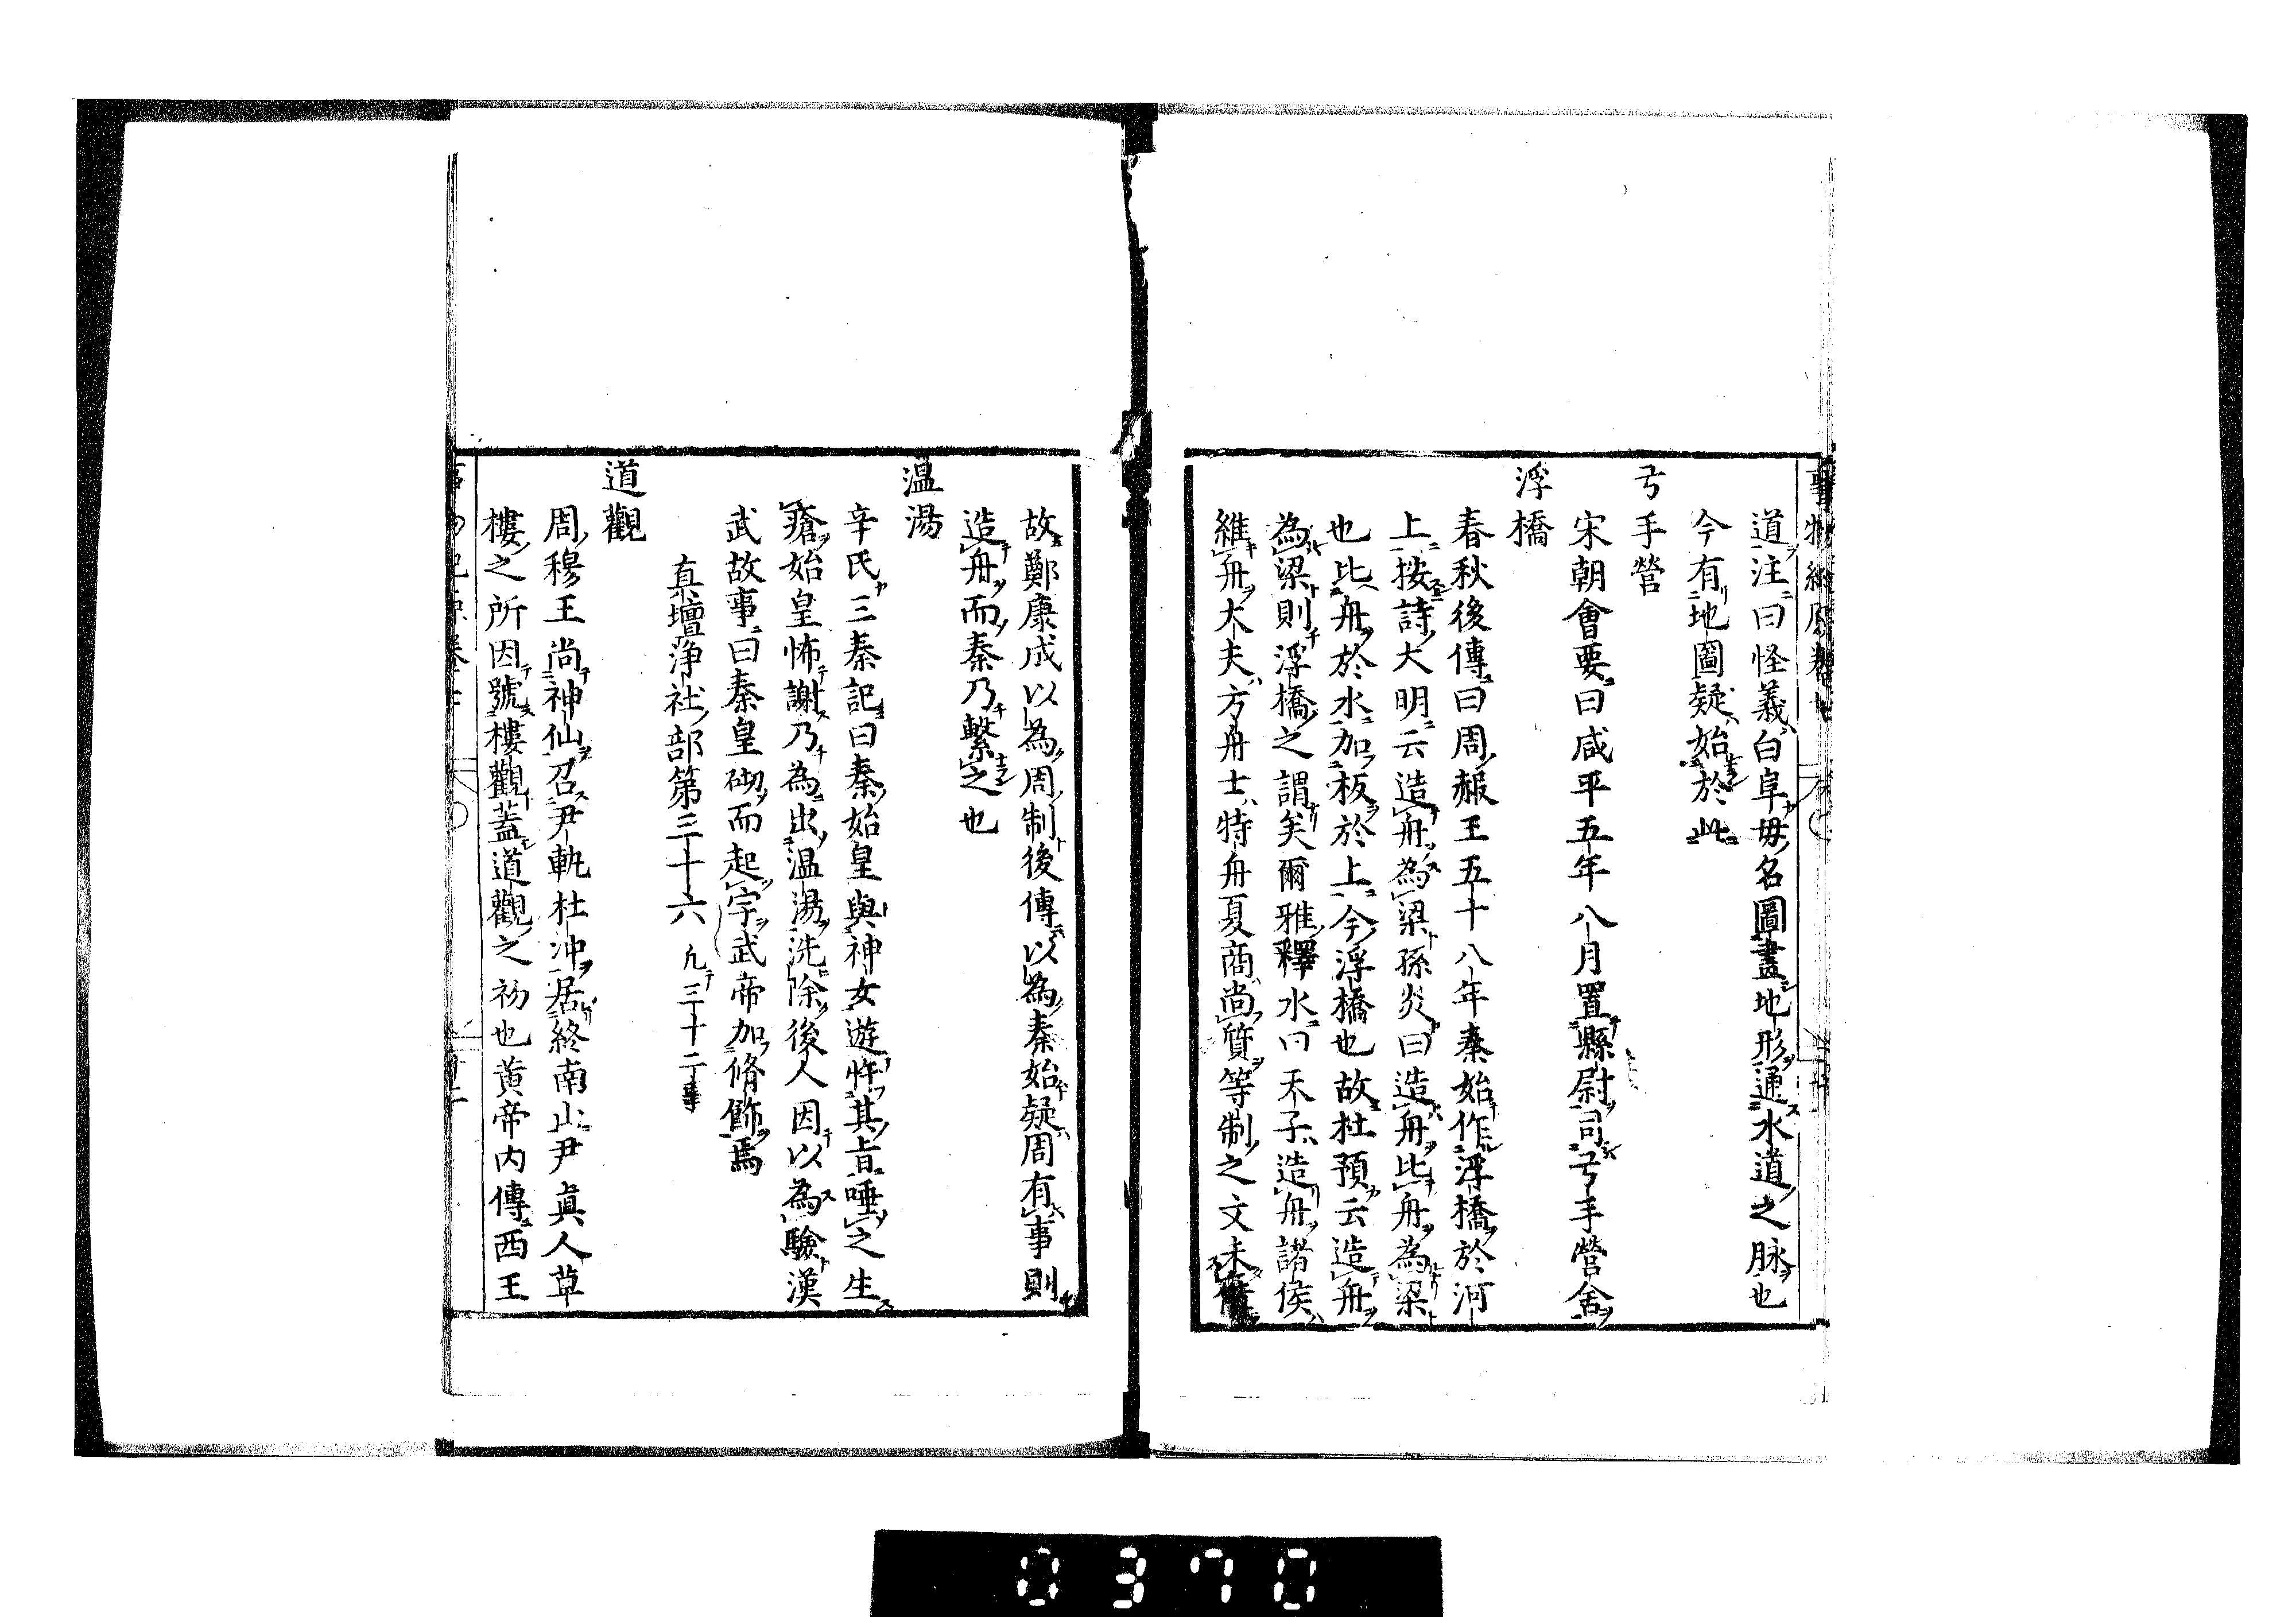 道注曰怪義白阜毋名圖畫地形通水道之脉也
今有地圖疑始於此
弓手營
宋朝會要曰咸平五年八月置縣尉司弓手營舍
浮橋
春秋後傳曰周赧王五十八年秦始作浮橋於河
上按詩大明云造舟為梁孫炎曰造舟比舟為梁
也比舟於水加板於上今浮橋也故杜預云造舟
為梁則浮橋之謂矣爾雅釋水曰天子造舟諸侯
維舟大夫方舟士特舟夏商尚質等制之文未
故鄭康成以為周制後傳以為秦始疑周有事則
造舟而秦乃繫之也
温湯
辛氏三秦記曰秦始皇與神女遊忤其旨唾之生
瘡始皇怖謝乃為出温湯洗除後人因以為驗漢
武故事曰秦皇砌而起宇武帝加脩飾焉
真壇浄社部第三十六 凡三十二事
道觀
周穆王尚神仙召尹軌杜沖居終南山尹真人草
樓之所因號樓觀蓋道觀之初也黄帝内傳西王
0370